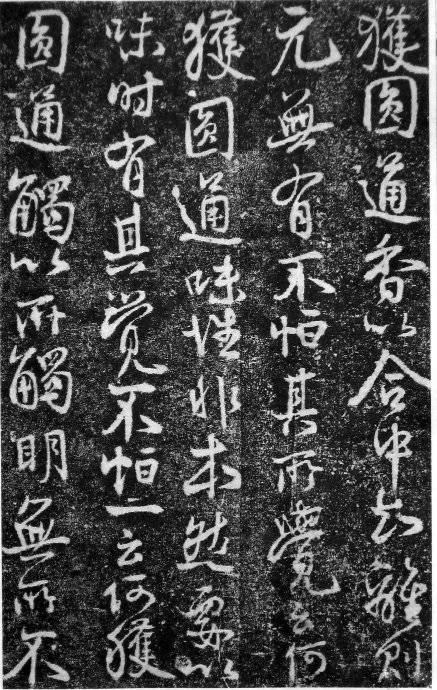 獲圓通香以合中知離則
元無有不恒其所覺云何
獲圓通味性非本然要以
味时有其覺不恒一云何獲
圓通觸以所觸明無所不